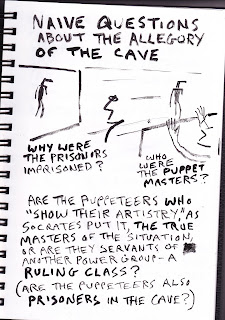 NAIVE QUESTIONS
ABOUT THE ALLEGORY
OF THE CAVE
WHY WERE
THE PRISONIRS
IMPRISONED?
WHO
WERE
THE PUPPET
MASTERS?
ARE THE PUPPETEERS WHO
"SHOW THEIR ARTISTRY," AS
SOCRATES PUT IT, THE TRUE
MASTERS OF THE SITUATION,
OR ARE THEY SERVANTS OF
ANOTHER POWER GROUP-A
RULING CLASS?
(ARE THE PUPPETEERS ALSO
PRISONERS IN THE CAVE?)